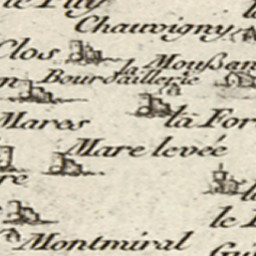 le Puy
Chauvigny
Clos
la Moußan
Bourdaillerie
Mares
la For
Mare levée
re
le
Montmiral